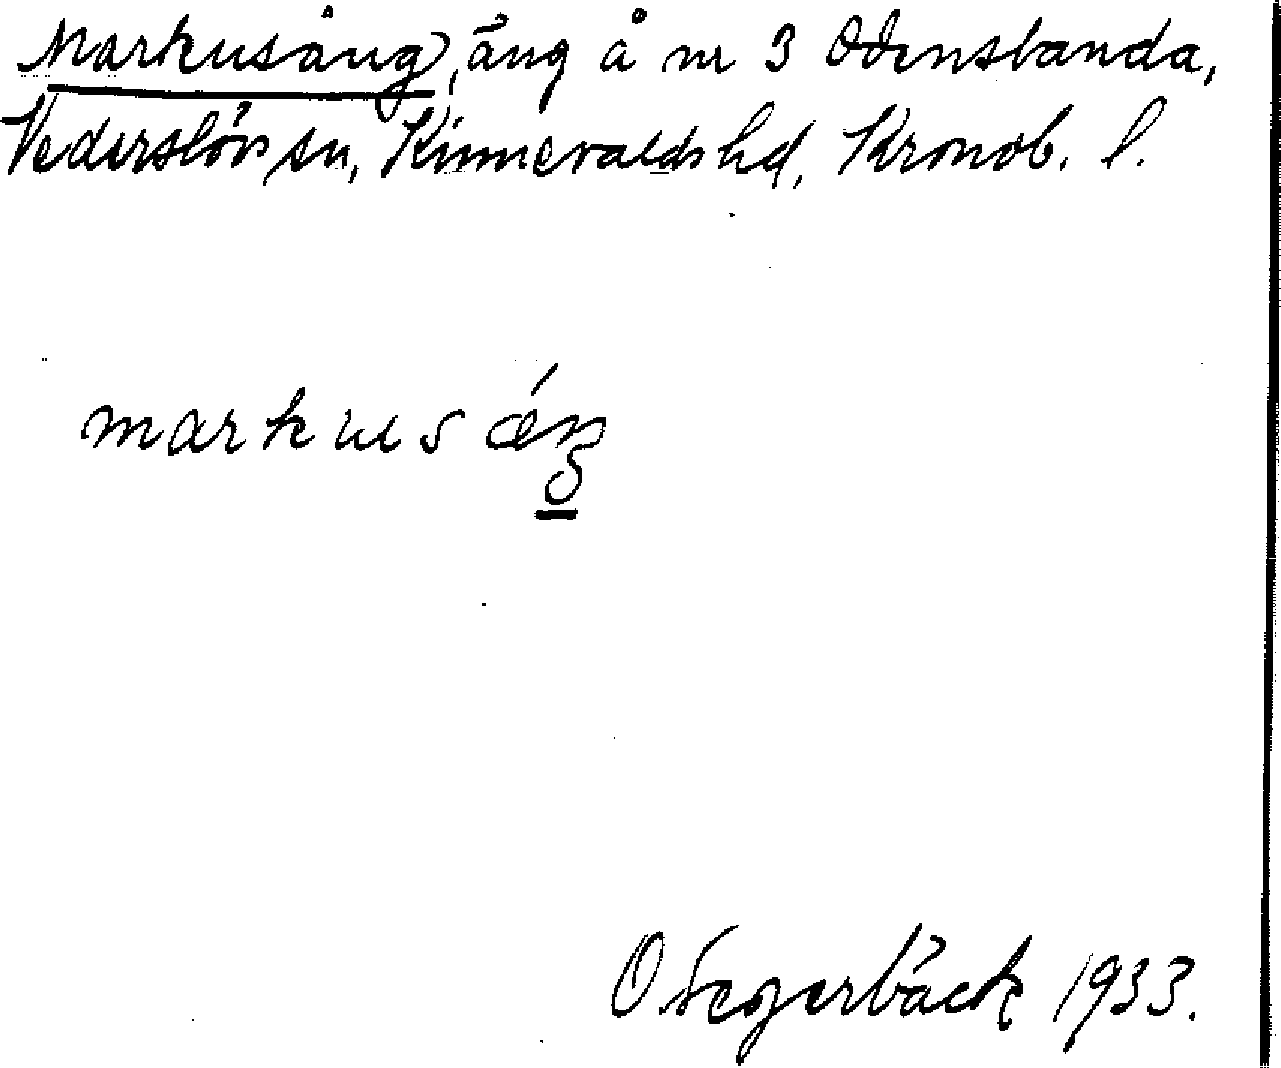 Markusäng, äng å nr 3 Odenslanda,
Vederslövs sn, Kinnevalds hd, Kronob. l.
markus ä́ŋ
O Segerbäck 1933.